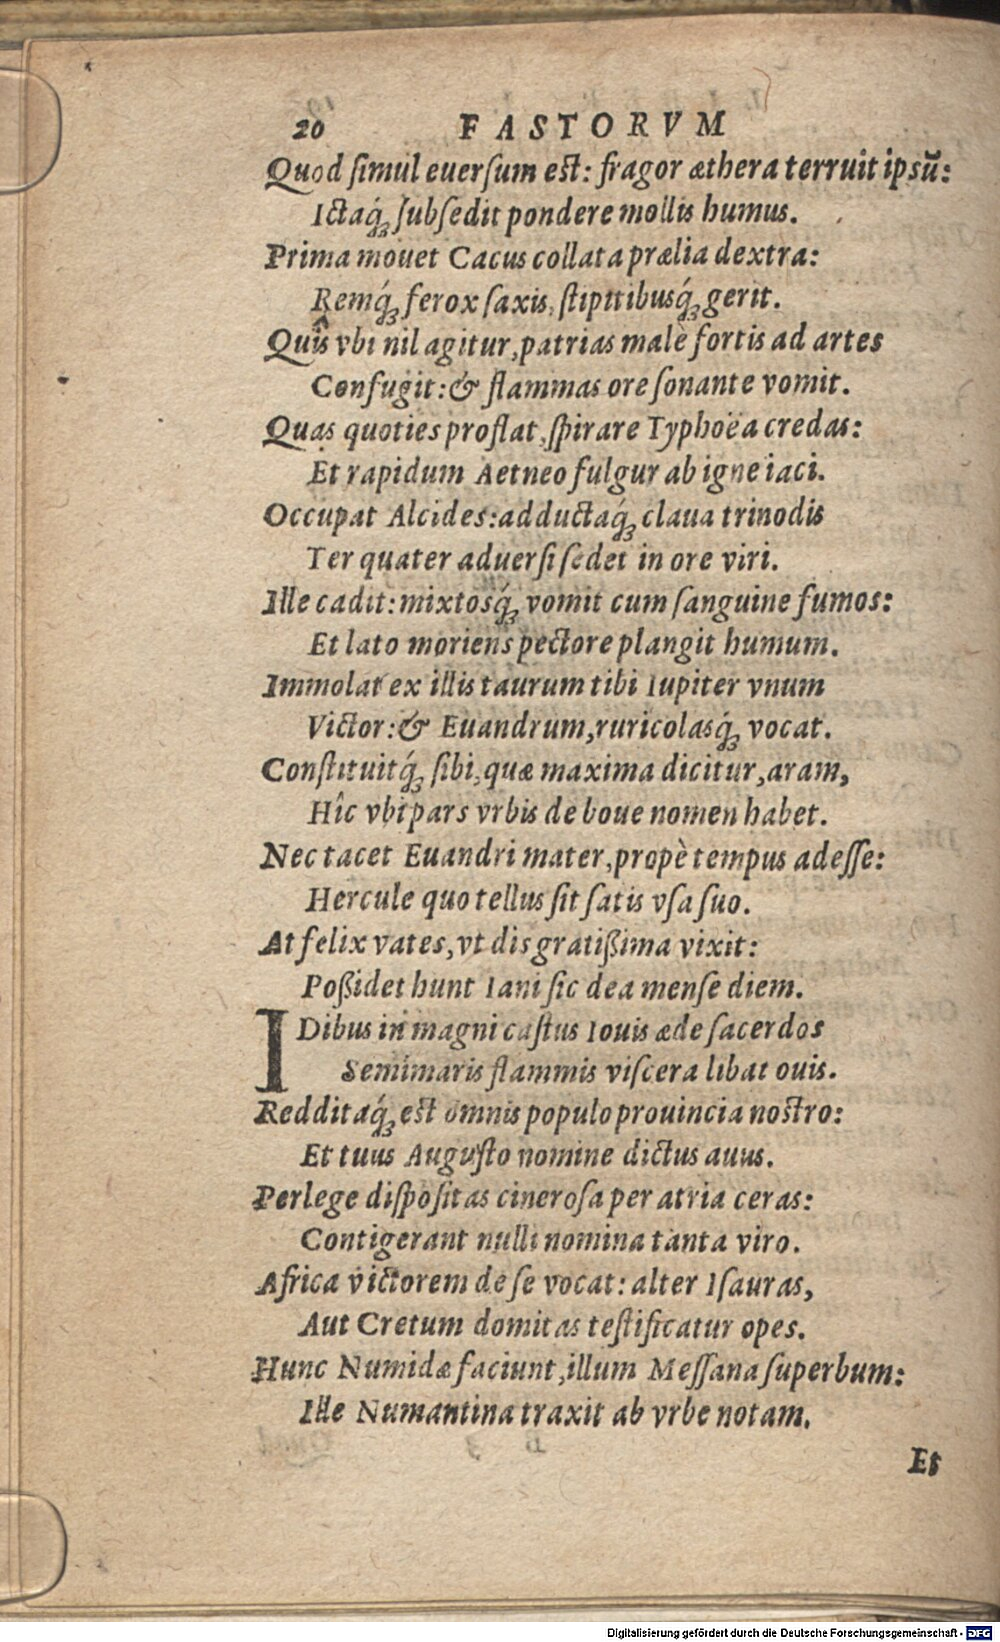 20 FASTORVM
Quod ſimul euerſum eſt: fragor æthera terruit ipsū:
Ictaq́ꝫ ſubſedit pondere mollis humus.
Prima mouet Cacus collata prælia dextra:
Remq́ꝫ ferox ſaxis, ſtipitibusq́ꝫ gerit.
Quîs vbi nil agitur, patrias malè fortis ad artes
Confugit: & flammas ore ſonante vomit.
Quas quoties proflat, ſpirare Typhoëa credas:
Et rapidum Aetneo fulgur ab igne iaci.
Occupat Alcides: adductaq́ꝫ claua trinodis
Ter quater aduerſi ſedet in ore viri.
Ille cadit: mixtosq́ꝫ vomit cum ſanguine fumos:
Et lato moriens pectore plangit humum.
Immolat ex illis taurum tibi Iupiter vnum
Victor: & Euandrum, ruricolasq́ꝫ vocat.
Conſtituitq́ꝫ ſibi, quæ maxima dicitur, aram,
Hîc vbi pars vrbis de boue nomen habet.
Nec tacet Euandri mater, propè tempus adeſſe:
Hercule quo tellus ſit ſatis vſa ſuo.
At felix vates, vt dis gratißima vixit:
Poßidet hunc Iani ſic dea menſe diem.
IDibus in magni caſtus Iouis æde ſacerdos
Semimaris flammis viſcera libat ouis.
Redditaq́ꝫ eſt omnis populo prouincia noſtro:
Et tuus Auguſto nomine dictus auus.
Perlege diſpoſitas cineroſa per atria ceras:
Contigerant nulli nomina tanta viro.
Africa victorem de ſe vocat: alter Iſauras,
Aut Cretum domitas teſtificatur opes.
Hunc Numidæ faciunt, illum Meſſana ſuperbum:
Ille Numantina traxit ab vrbe notam.
Et
Digitalisierung gefördert durch die Deutsche Forschungsgemeinschaft - DFG